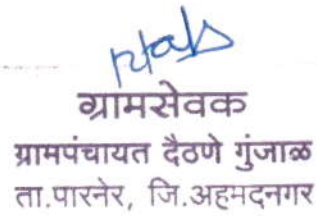 ग्रामसेवक
ग्रामपंचायत दैठणे गुंजाळ
ता.पारनेर, जि.अहमदनगर